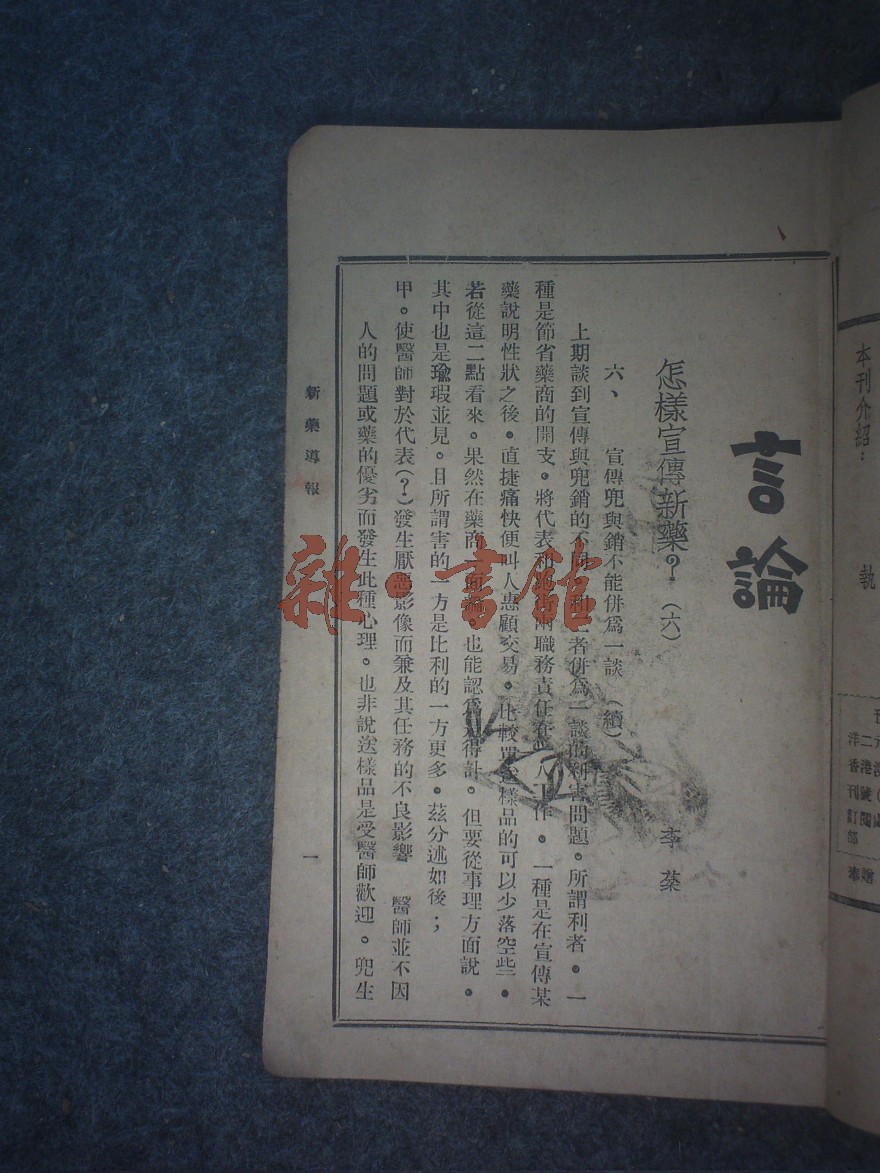 言論
怎樣宣傳新藥？（六）
李蕖
六、宣傳兜與銷不能併為一談（續）
上期談到宣傳與兜銷的不同，和二者併為一談的利害問題。所謂利者。一
種是節省藥商的開支。將代表和兩職務責任人工作。一種是在宣傳某
藥說明性狀之後。直捷痛快便叫人惠顧交易。比較送樣品的可以少落空些。
若從這二點看來。果然在藥商一面。也能認為得計。但要從事理方面說。
其中也是瑜瑕並見。且所謂害的一方是比利的一方更多。茲分述如後；
甲。使醫師對於代表（？）發生厭惡影像而兼及其任務的不良影響 醫師並不因
人的問題或藥的優劣而發生此種心理。也非說送樣品是受醫師歡迎。兜生
新藥導報
一
本刊介紹：
執
洋二元
香港澳
刊號（
訂閱
部
雜·書館